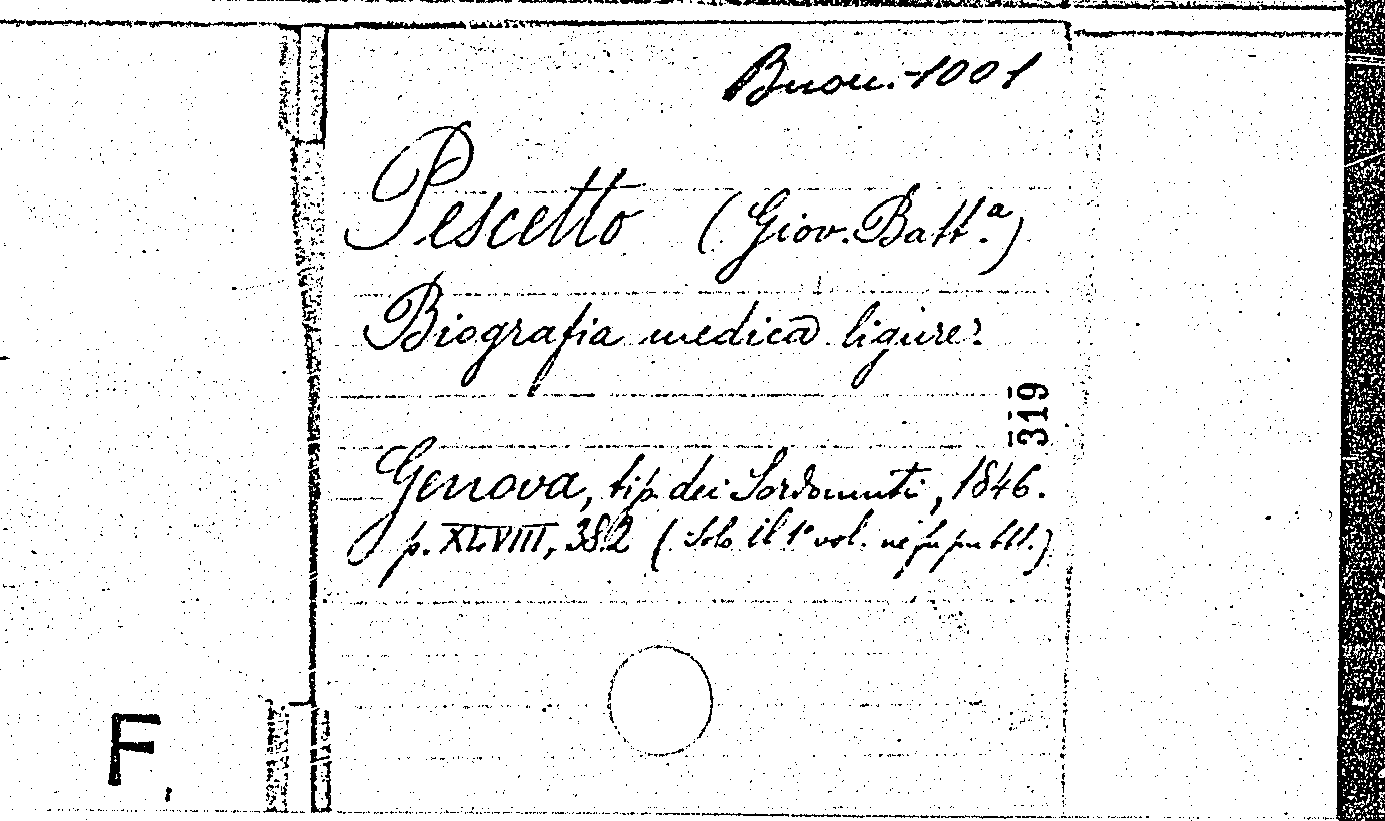 Buon. 1001
Pescetto (Giov. Batt.ª)
Biografia medica ligure.
319
Genova, tip. dei Sordomuti, 1846.
p. XLVIII, 382 (Solo il 1° vol. ne fu pubbl.)
F